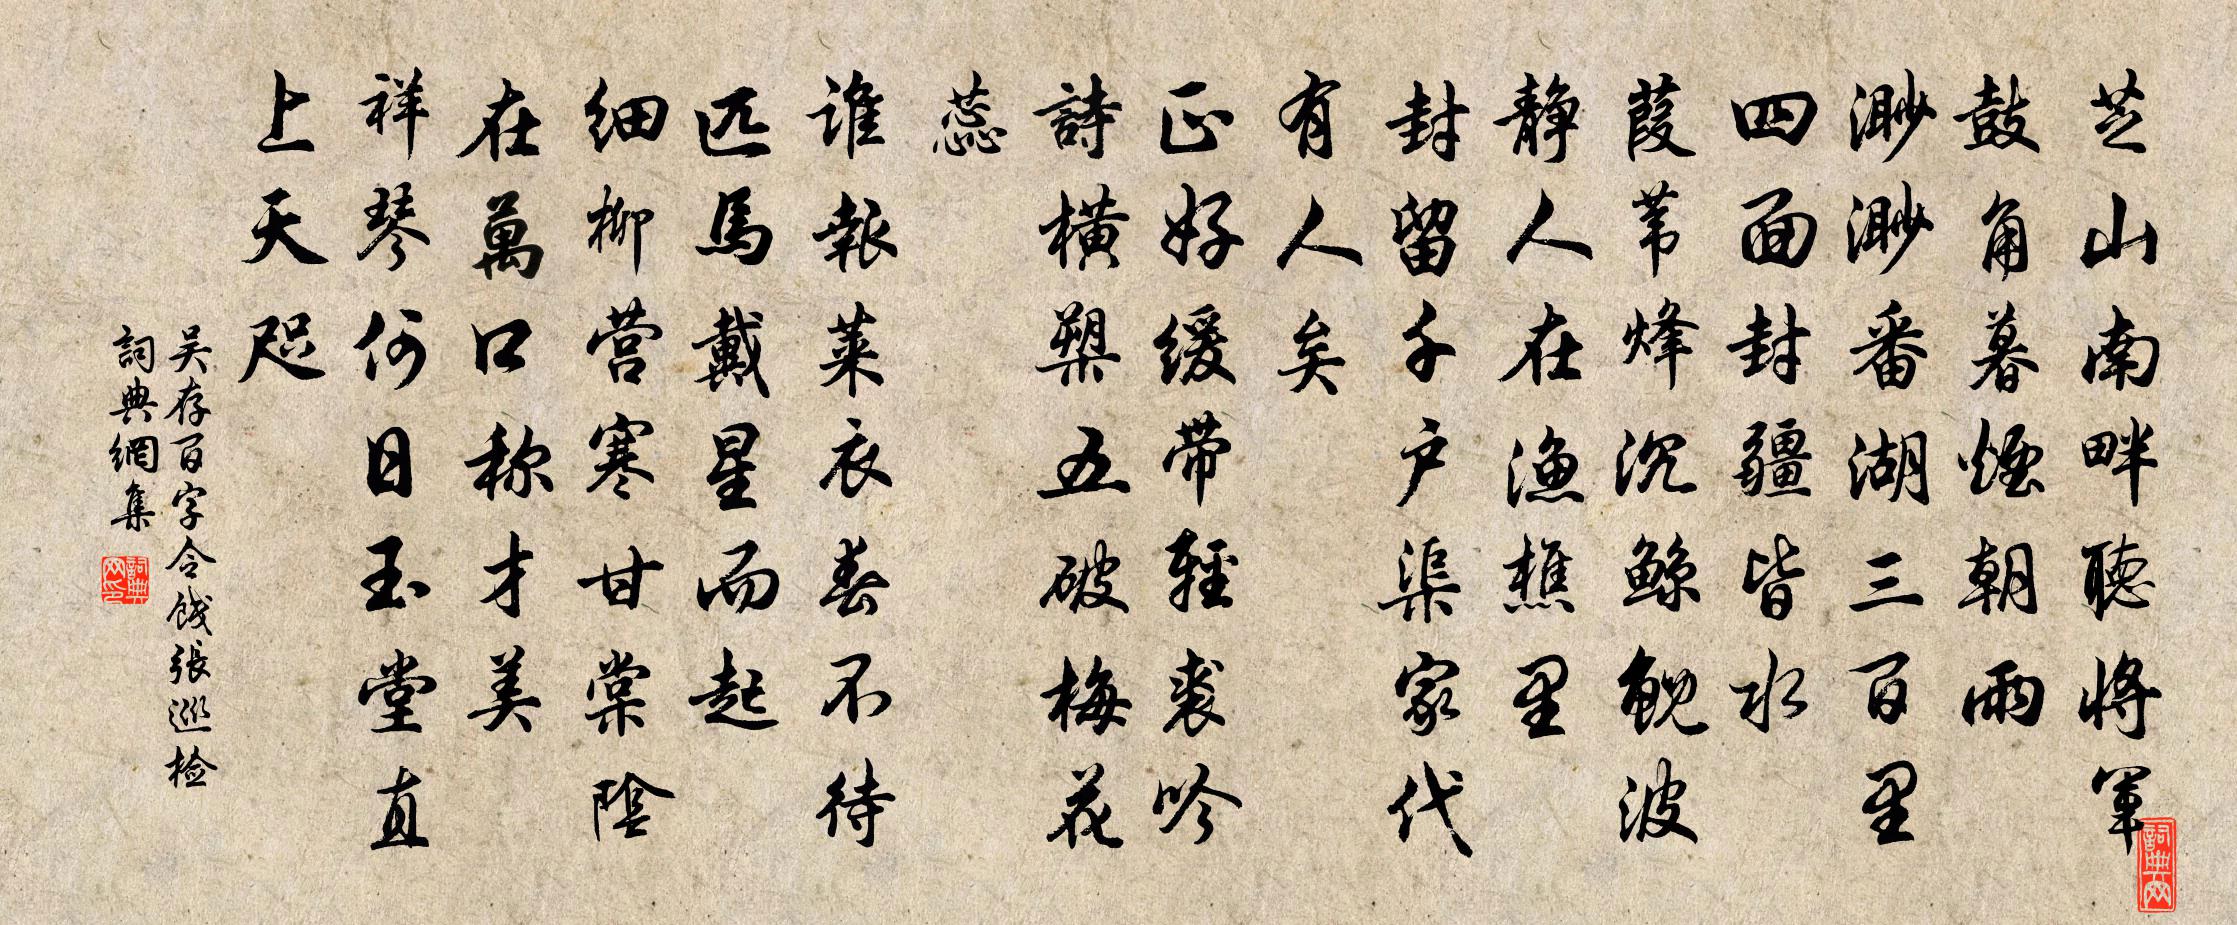 芝山南畔聽將軍
鼓角暮煙朝雨
渺渺番湖三百里
四面封疆皆水
葭苇烽沉鲸鲵波
静人在漁樵里
封留千户渠家代
有人矣
正好缓带輕裘吟
詩橫槊五破梅花
蕊
谁報莱衣春不待
匹馬戴星而起
细柳营寒甘棠陰
在萬口称才美
祥琴何日玉堂直
上天咫
吴存百字令餞張巡检
詞典網集
詞典网印
詞典网